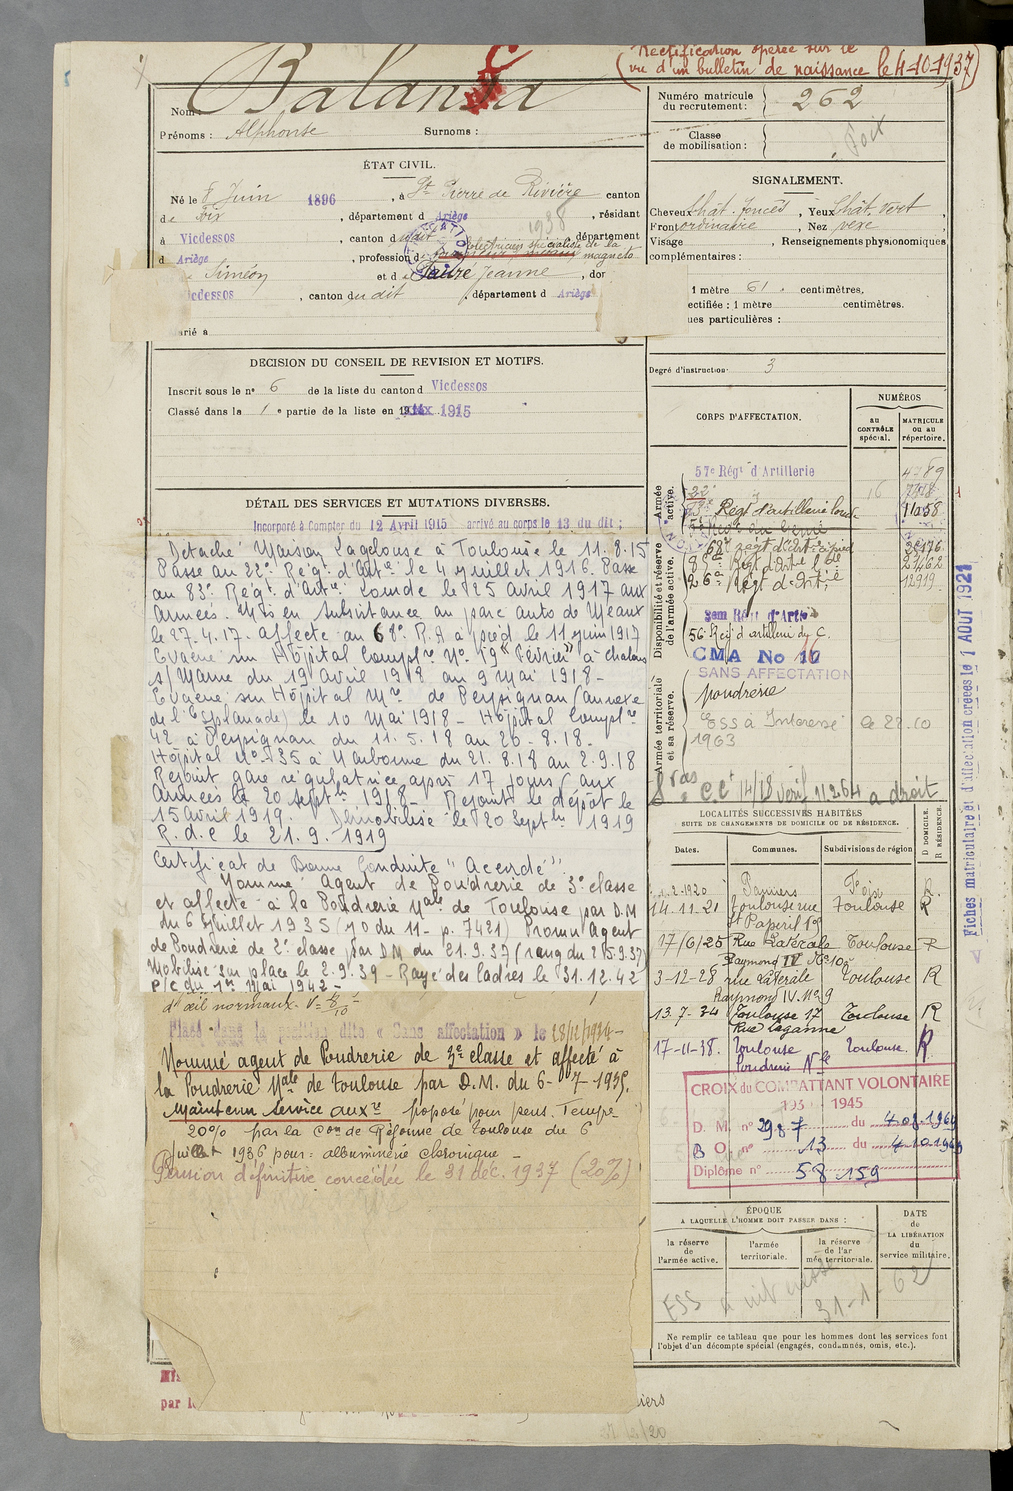 (Rectification opérée sur le
vu d'un bulletin de naissance le 4-10-1937)
Nom :
Prénoms : Alphonse Surnoms :
ÉTAT CIVIL.
Né le 8 Juin 1896, à St Pierre de Rivière canton
de Foix, département d Ariège, résidant
à Vicdessos, canton du dit 1938 département
d Ariège, profession d électricien spécialiste de la magnéto
Siméon et d e Faure Jeanne, dom
cdessos, canton du dit, département d Ariège
arié à
DECISION DU CONSEIL DE REVISION ET MOTIFS.
Inscrit sous le n° 6 de la liste du canton d Vicdessos
Classé dans la 1 e partie de la liste en 1915
DÉTAIL DES SERVICES ET MUTATIONS DIVERSES.
Incorporé à Compter du 12 Avril 1915 arrivé au corps le 13 du dit ;
Détaché Maison Lagelouse à Toulouse le 11.8.15
Passé au 22e Régt d'Artie le 4 juillet 1916. Passé
au 83e Régt d'Artie Lourde le 25 avril 1917 aux
Armées. Mis en subsistance au parc auto de Meaux
le 27.4.17. Affecté au 68e R.A à pied le 11 juin 1917
Evacué sur Hôpital Complre No 19 "Février" à Chalons
s/Marne du 19 avril 1918 au 9 mai 1918 -
Evacué sur Hôpital Mre de Perpignan (annexe
de l'Esplanade) le 10 Mai 1918 - Hôpital Complre
42 à Perpignan du 11.5.18 au 20-8.18.
Hôpital No 35 à Narbonne du 21.8.18 au 2.9.18
Rejoint gare régulatrice après 17 jours (aux
Armées le 20 septbre 1918 - Rejoint le dépôt le
15 avril 1919. Démobilisé le 20 Septbre 1919
R.d.c le 21.9.1919
Certificat de Bonne Conduite "Accordé"
Nommé Agent de Poudrerie de 3e classe
et affecté à la Poudrerie Nale de Toulouse par D.M
du 6 Juillet 1935 (JO du 11 - p. 7421) Promu Agent
de Poudrerie de 2e classe par DM du 21.9.37 (rang du 25.9.37)
Mobilisé sur place le 2.9.39 - Rayé des Cadres le 31.12.42
P/C du 1er Mai 1942 -
d'œil normaux.
Placé dans la position dite « Sans affectation » le 28/12/1934 -
Nommé agent de Poudrerie de 3e classe et affecté à
la Poudrerie Nale de Toulouse par D.M. du 6-7-1935.
Maintenu service auxre proposé pour pens. Tempre
20% par la Con de Réforme de Toulouse du 6
juillet 1936 pour : albuminerie chronique -
Pension définitive concédée le 31 déc. 1937 (20%)
par le
Numéro matricule du recrutement : 262
Classe de mobilisation :
Foix
SIGNALEMENT.
Cheveux Chât. foncés, Yeux Chât. vert,
Front ordinaire, Nez vexe,
Visage, Renseignements physionomiques
complémentaires :
1 mètre 61 centimètres.
ectifiée : 1 mètre centimètres.
ues particulières :
Degré d'instruction 3
CORPS D'AFFECTATION.
NUMÉROS
au CONTRÔLE spécial.
MATRICULE ou au répertoire.
Armée active.
57e Régt d'Artillerie
22e
Régt d'artillerie lourde
Disponibilité et réserve de l'armée active.
68e régt d'artie à pied
Régt d'Artie
Régt d'Artie 12919
56 Régt d'artillerie du C.
CMA No 17
SANS AFFECTATION
Armée territoriale et sa réserve.
poudrerie
ESS à Intéressé le 22.10
1963
C.Ct 14/18 Vérif. 11.2.64 a droit
LOCALITÉS SUCCESSIVES HABITÉES
SUITE DE CHANGEMENTS DE DOMICILE OU DE RÉSIDENCE.
Dates. Communes. Subdivisions de région
D DOMICILE.
R RÉSIDENCE.
1.2-1920 Pamiers Foix R.
14.11-21 Toulouse rue Toulouse R
17/6/25 Rue Latérale Toulouse R
Raymond IV No 10
3-12-28 rue Latérale Toulouse R
Raymond IV. No 9
13-7-34 Toulouse 17 Toulouse R
Rue Laganne
17-11-38. Toulouse Toulouse. R
Poudrerie Nle
CROIX du COMBATTANT VOLONTAIRE
1945
D. M. n° 2987 du 4-08-1969
B O. n° 13 du 4-10-1969
Diplôme n° 58 159
ÉPOQUE
A LAQUELLE L'HOMME DOIT PASSER DANS :
la réserve de l'armée active.
l'armée territoriale.
la réserve de l'armée territoriale.
DATE de LA LIBÉRATION du service militaire.
ESS
31-1-62
Ne remplir ce tableau que pour les hommes dont les services font
l'objet d'un décompte spécial (engagés, condamnés, omis, etc.).
Fiches matriculaire et d'affectation créées le 1 AOUT 1921
iers